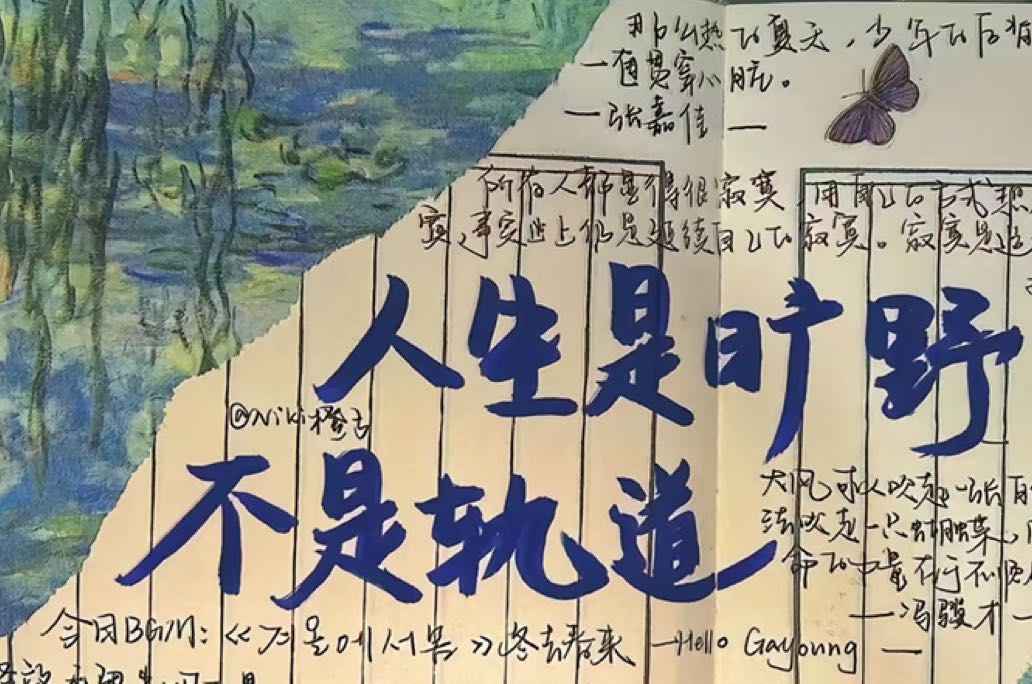 那么热的夏天，少年的后背
一直贯穿心脏。
—张嘉佳—
所有人都觉得很寂寞，用自己的方式想
寞，事实上仍是延续自己的寂寞。寂寞是造
人生是旷野
@Niki橙子
不是轨道
大风可以吹起一张
法吹走一只蝴蝶，
命的力量在于不顺从
—冯骥才—
今日BGM：《겨울에서 봄》冬去春来—Hello Gayoung—